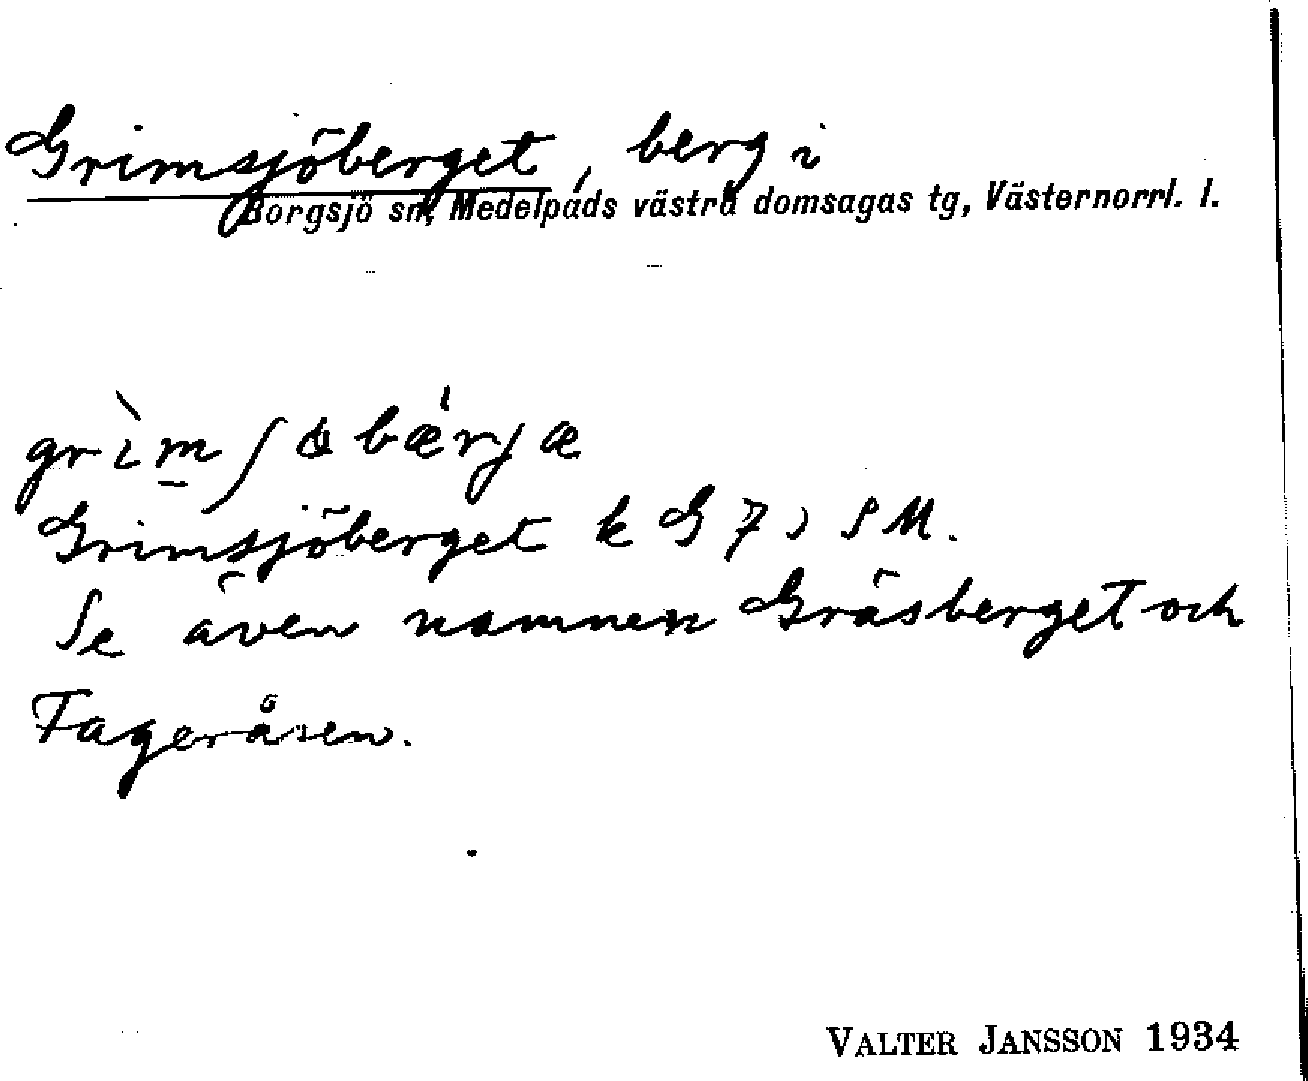 Grimsjöberget, berg i
Borgsjö sn, Medelpads västra domsagas tg, Västernorrl. l.
Grimsjöberget k G 7, SM.
Se även namnen Gräsberget och
Fageråsen.
VALTER JANSSON 1934